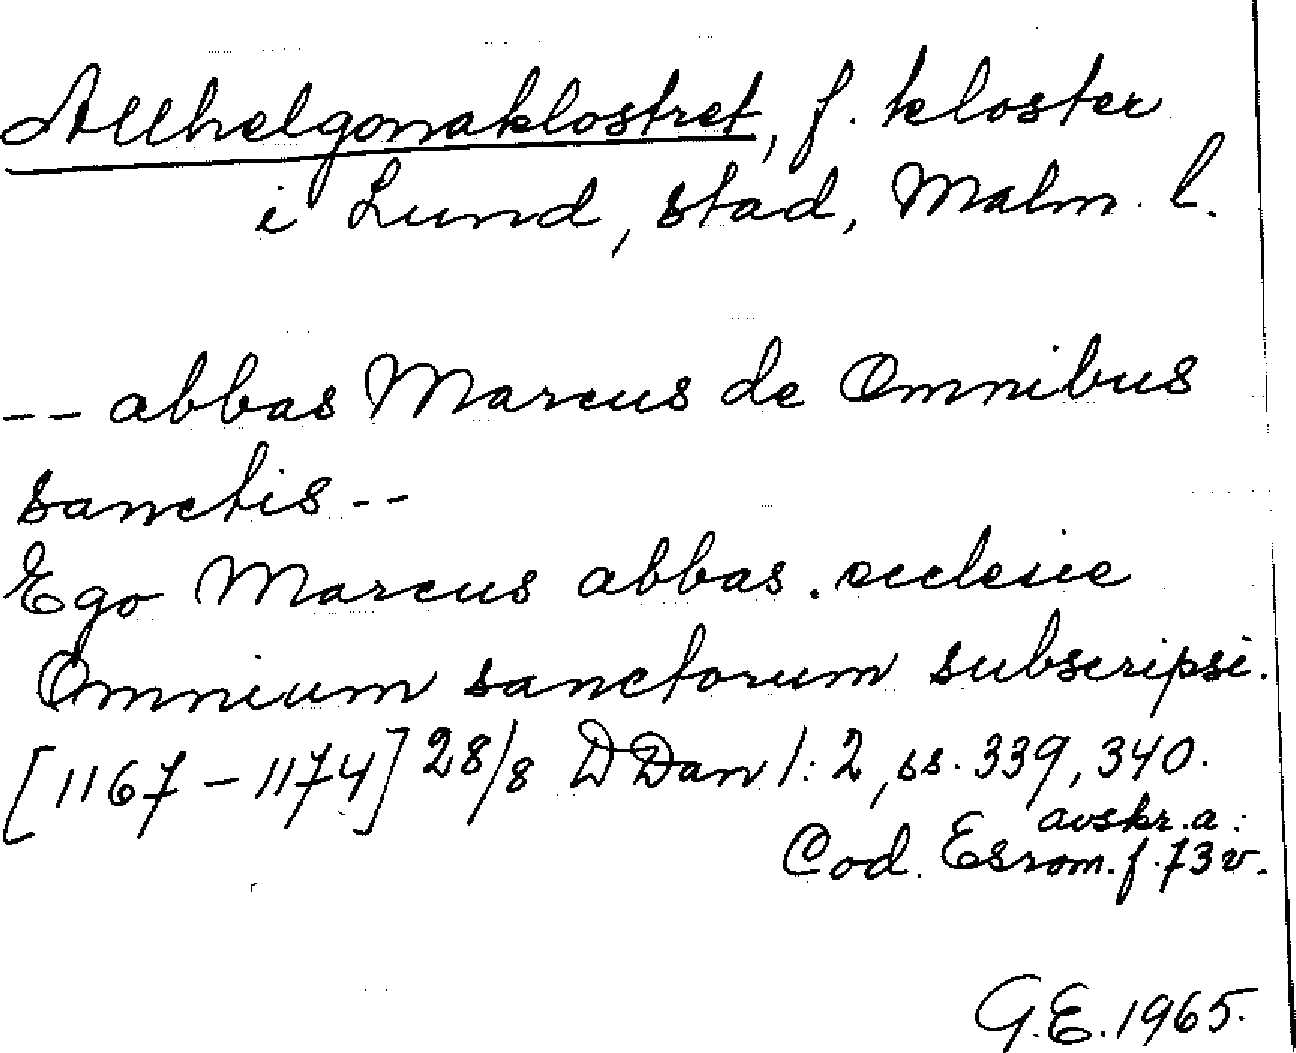 Allhelgonaklostret, f. kloster
i Lund, stad, Malm. l.
-- abbas Marcus de Omnibus
sanctis --
Ego Marcus abbas . ecclesie
Omnium sanctorum subscripsi.
[1167 - 1174] 28/8 DDan 1:2, ss. 339, 340.
avskr. a:
Cod. Esrom. f. 73 v.
G.E. 1965.